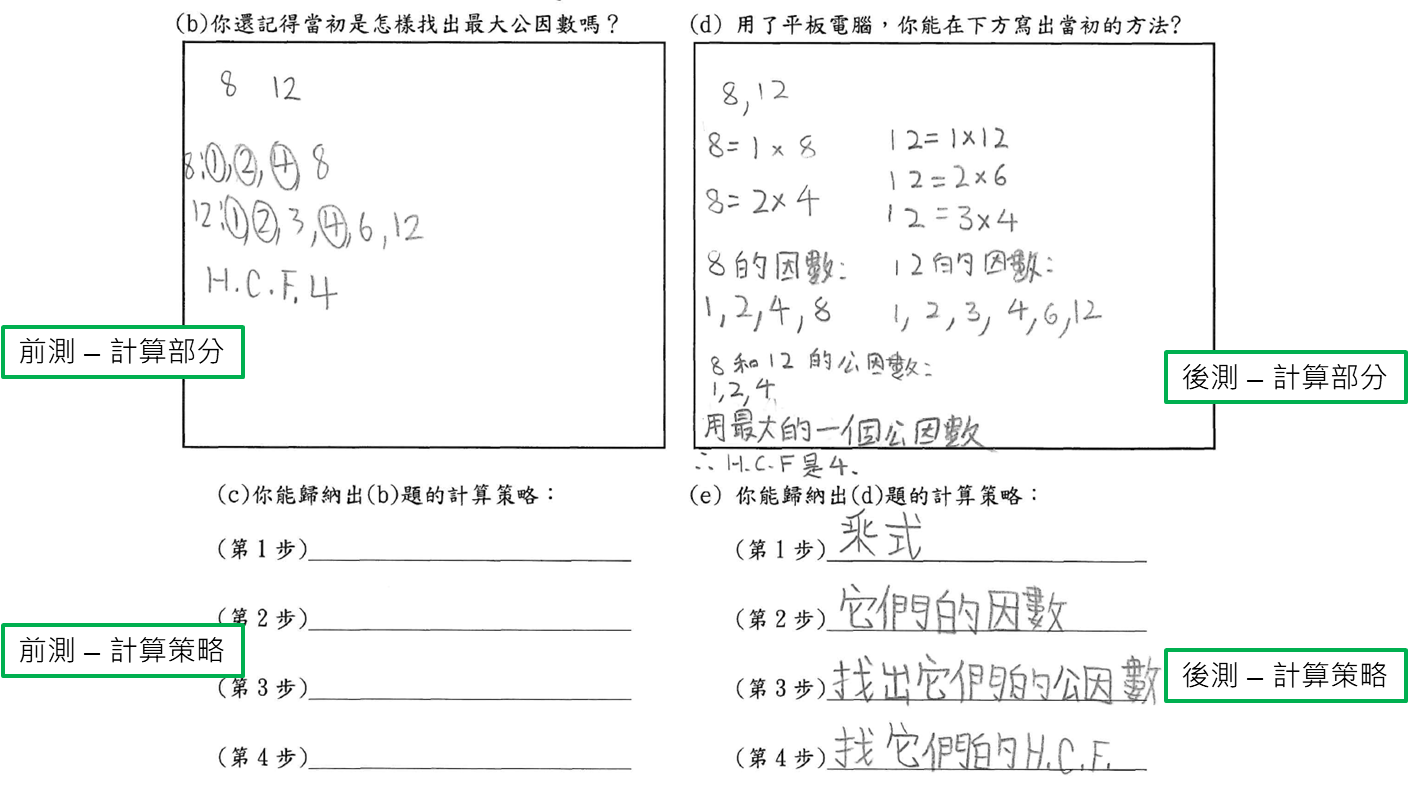 (b)你還記得當初是怎樣找出最大公因數嗎？
8 12
8:①,②,④ 8
12:①②,3,④,6,12
H.C.F. 4
前測 – 計算部分
(c)你能歸納出(b)題的計算策略：
(第 1 步)
(第 2 步)
前測 – 計算策略
(第 3 步)
(第 4 步)
(d) 用了平板電腦，你能在下方寫出當初的方法?
8,12
8=1×8 12=1×12
8=2×4 12=2×6
12=3×4
8的因數: 12的因數:
1,2,4,8 1,2,3,4,6,12
8和12的公因數:
1,2,4
用最大的一個公因數
∴ H.C.F是4.
後測 – 計算部分
(e) 你能歸納出(d)題的計算策略：
(第 1 步)乘式
(第 2 步)它們的因數
(第 3 步)找出它們的公因數
後測 – 計算策略
(第 4 步)找它們的H.C.F.